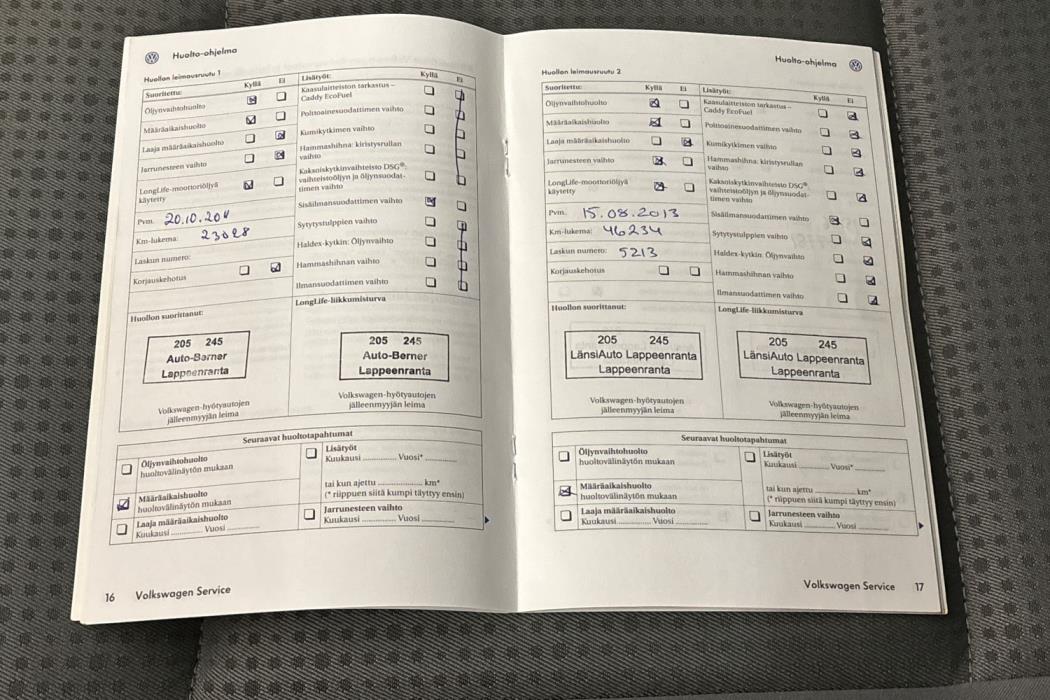 Huolto-ohjelma
Huollon leimausruutu 1
Suoritettu: Kyllä Ei Lisätyöt: Kyllä Ei
Öljynvaihtohuolto
Kaasulaitteiston tarkastus –
Caddy EcoFuel
Määräaikaishuolto
Polttoainesuodattimen vaihto
Laaja määräaikaishuolto
Kumikytkimen vaihto
Jarrunesteen vaihto
Hammashihna: kiristysrullan
vaihto
LongLife-moottoriöljyä
käytetty
Kaksoiskytkinvaihteisto DSG®:
vaihteistoöljyn ja öljynsuodat-
timen vaihto
Pvm. 20.10.2011
Sisäilmansuodattimen vaihto
Km-lukema: 23028
Sytytystulppien vaihto
Laskun numero:
Haldex-kytkin: Öljynvaihto
Korjauskehotus
Hammashihnan vaihto
Ilmansuodattimen vaihto
Huollon suorittanut:
LongLife-liikkumisturva
205 245
Auto-Berner
Lappeenranta
205 245
Auto-Berner
Lappeenranta
Volkswagen-hyötyautojen
jälleenmyyjän leima
Volkswagen-hyötyautojen
jälleenmyyjän leima
Seuraavat huoltotapahtumat
Öljynvaihtohuolto
huoltovälinäytön mukaan
Lisätyöt
Kuukausi Vuosi*
Määräaikaishuolto
huoltovälinäytön mukaan
tai kun ajettu km*
(* riippuen siitä kumpi täyttyy ensin)
Laaja määräaikaishuolto
Kuukausi Vuosi
Jarrunesteen vaihto
Kuukausi Vuosi
16 Volkswagen Service
Huolto-ohjelma
Huollon leimausruutu 2
Suoritettu: Kyllä Ei Lisätyöt: Kyllä Ei
Öljynvaihtohuolto
Kaasulaitteiston tarkastus –
Caddy EcoFuel
Määräaikaishuolto
Polttoainesuodattimen vaihto
Laaja määräaikaishuolto
Kumikytkimen vaihto
Jarrunesteen vaihto
Hammashihna: kiristysrullan
vaihto
LongLife-moottoriöljyä
käytetty
Kaksoiskytkinvaihteisto DSG®:
vaihteistoöljyn ja öljynsuodat-
timen vaihto
Pvm. 15.08.2013
Sisäilmansuodattimen vaihto
Km-lukema: 46234
Sytytystulppien vaihto
Laskun numero: 5213
Haldex-kytkin: Öljynvaihto
Korjauskehotus
Hammashihnan vaihto
Ilmansuodattimen vaihto
Huollon suorittanut:
LongLife-liikkumisturva
205 245
LänsiAuto Lappeenranta
Lappeenranta
205 245
LänsiAuto Lappeenranta
Lappeenranta
Volkswagen-hyötyautojen
jälleenmyyjän leima
Volkswagen-hyötyautojen
jälleenmyyjän leima
Seuraavat huoltotapahtumat
Öljynvaihtohuolto
huoltovälinäytön mukaan
Lisätyöt
Kuukausi Vuosi*
Määräaikaishuolto
huoltovälinäytön mukaan
tai kun ajettu km*
(* riippuen siitä kumpi täyttyy ensin)
Laaja määräaikaishuolto
Kuukausi Vuosi
Jarrunesteen vaihto
Kuukausi Vuosi
Volkswagen Service 17